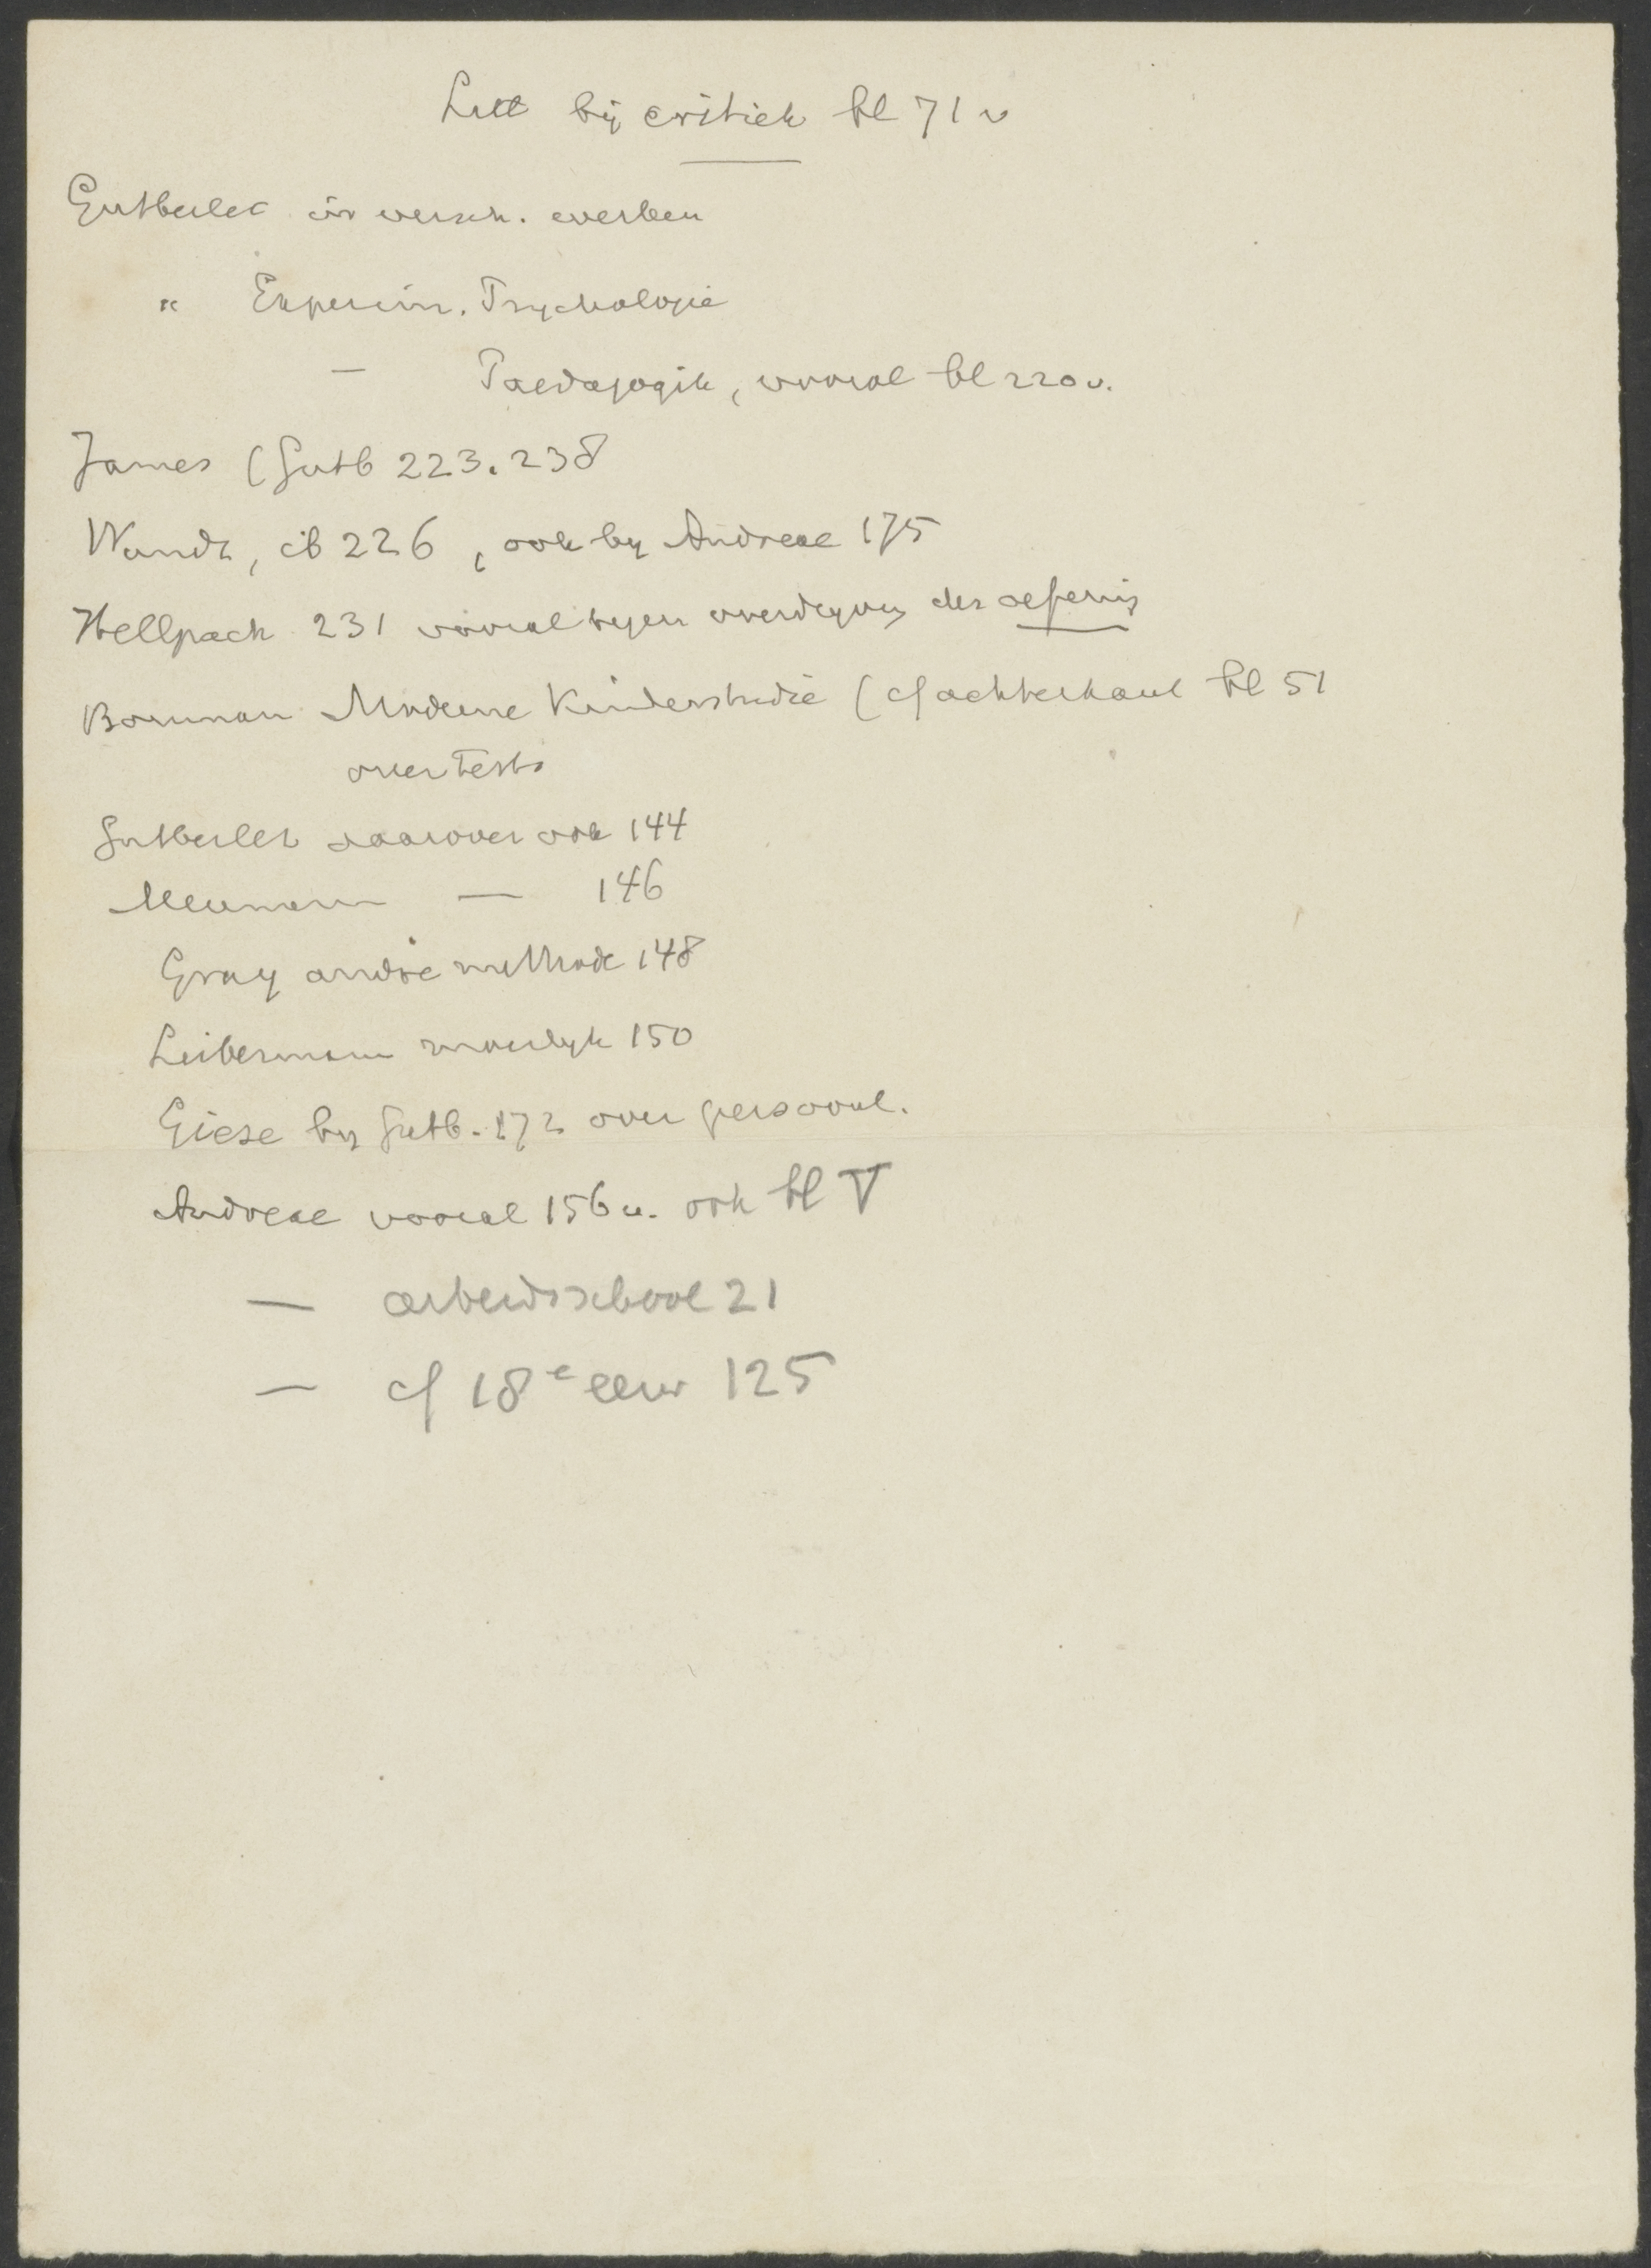 Litt bij critiek bl 71 v
Gutberlet in versch. werken
" Experim. Psychologie
— Paedagogik, vooral bl 220 v.
James (Gutb 223. 238
Wundt, ib 226, ook by Andreae 175
Hellpach 231 vooral tegen overdryving der oefening
Bouman Moderne Kinderstudie (cf achterkant bl 51
over tests
Gutberlet daarover ook 144
Meumann — 146
Gray andre methode 148
Leibermann moeilyk 150
Giese by Gutb. 172 over persoonl.
Andreae vooral 156 v. ook bl V
— arbeidsschool 21
— cf 18e eeuw 125